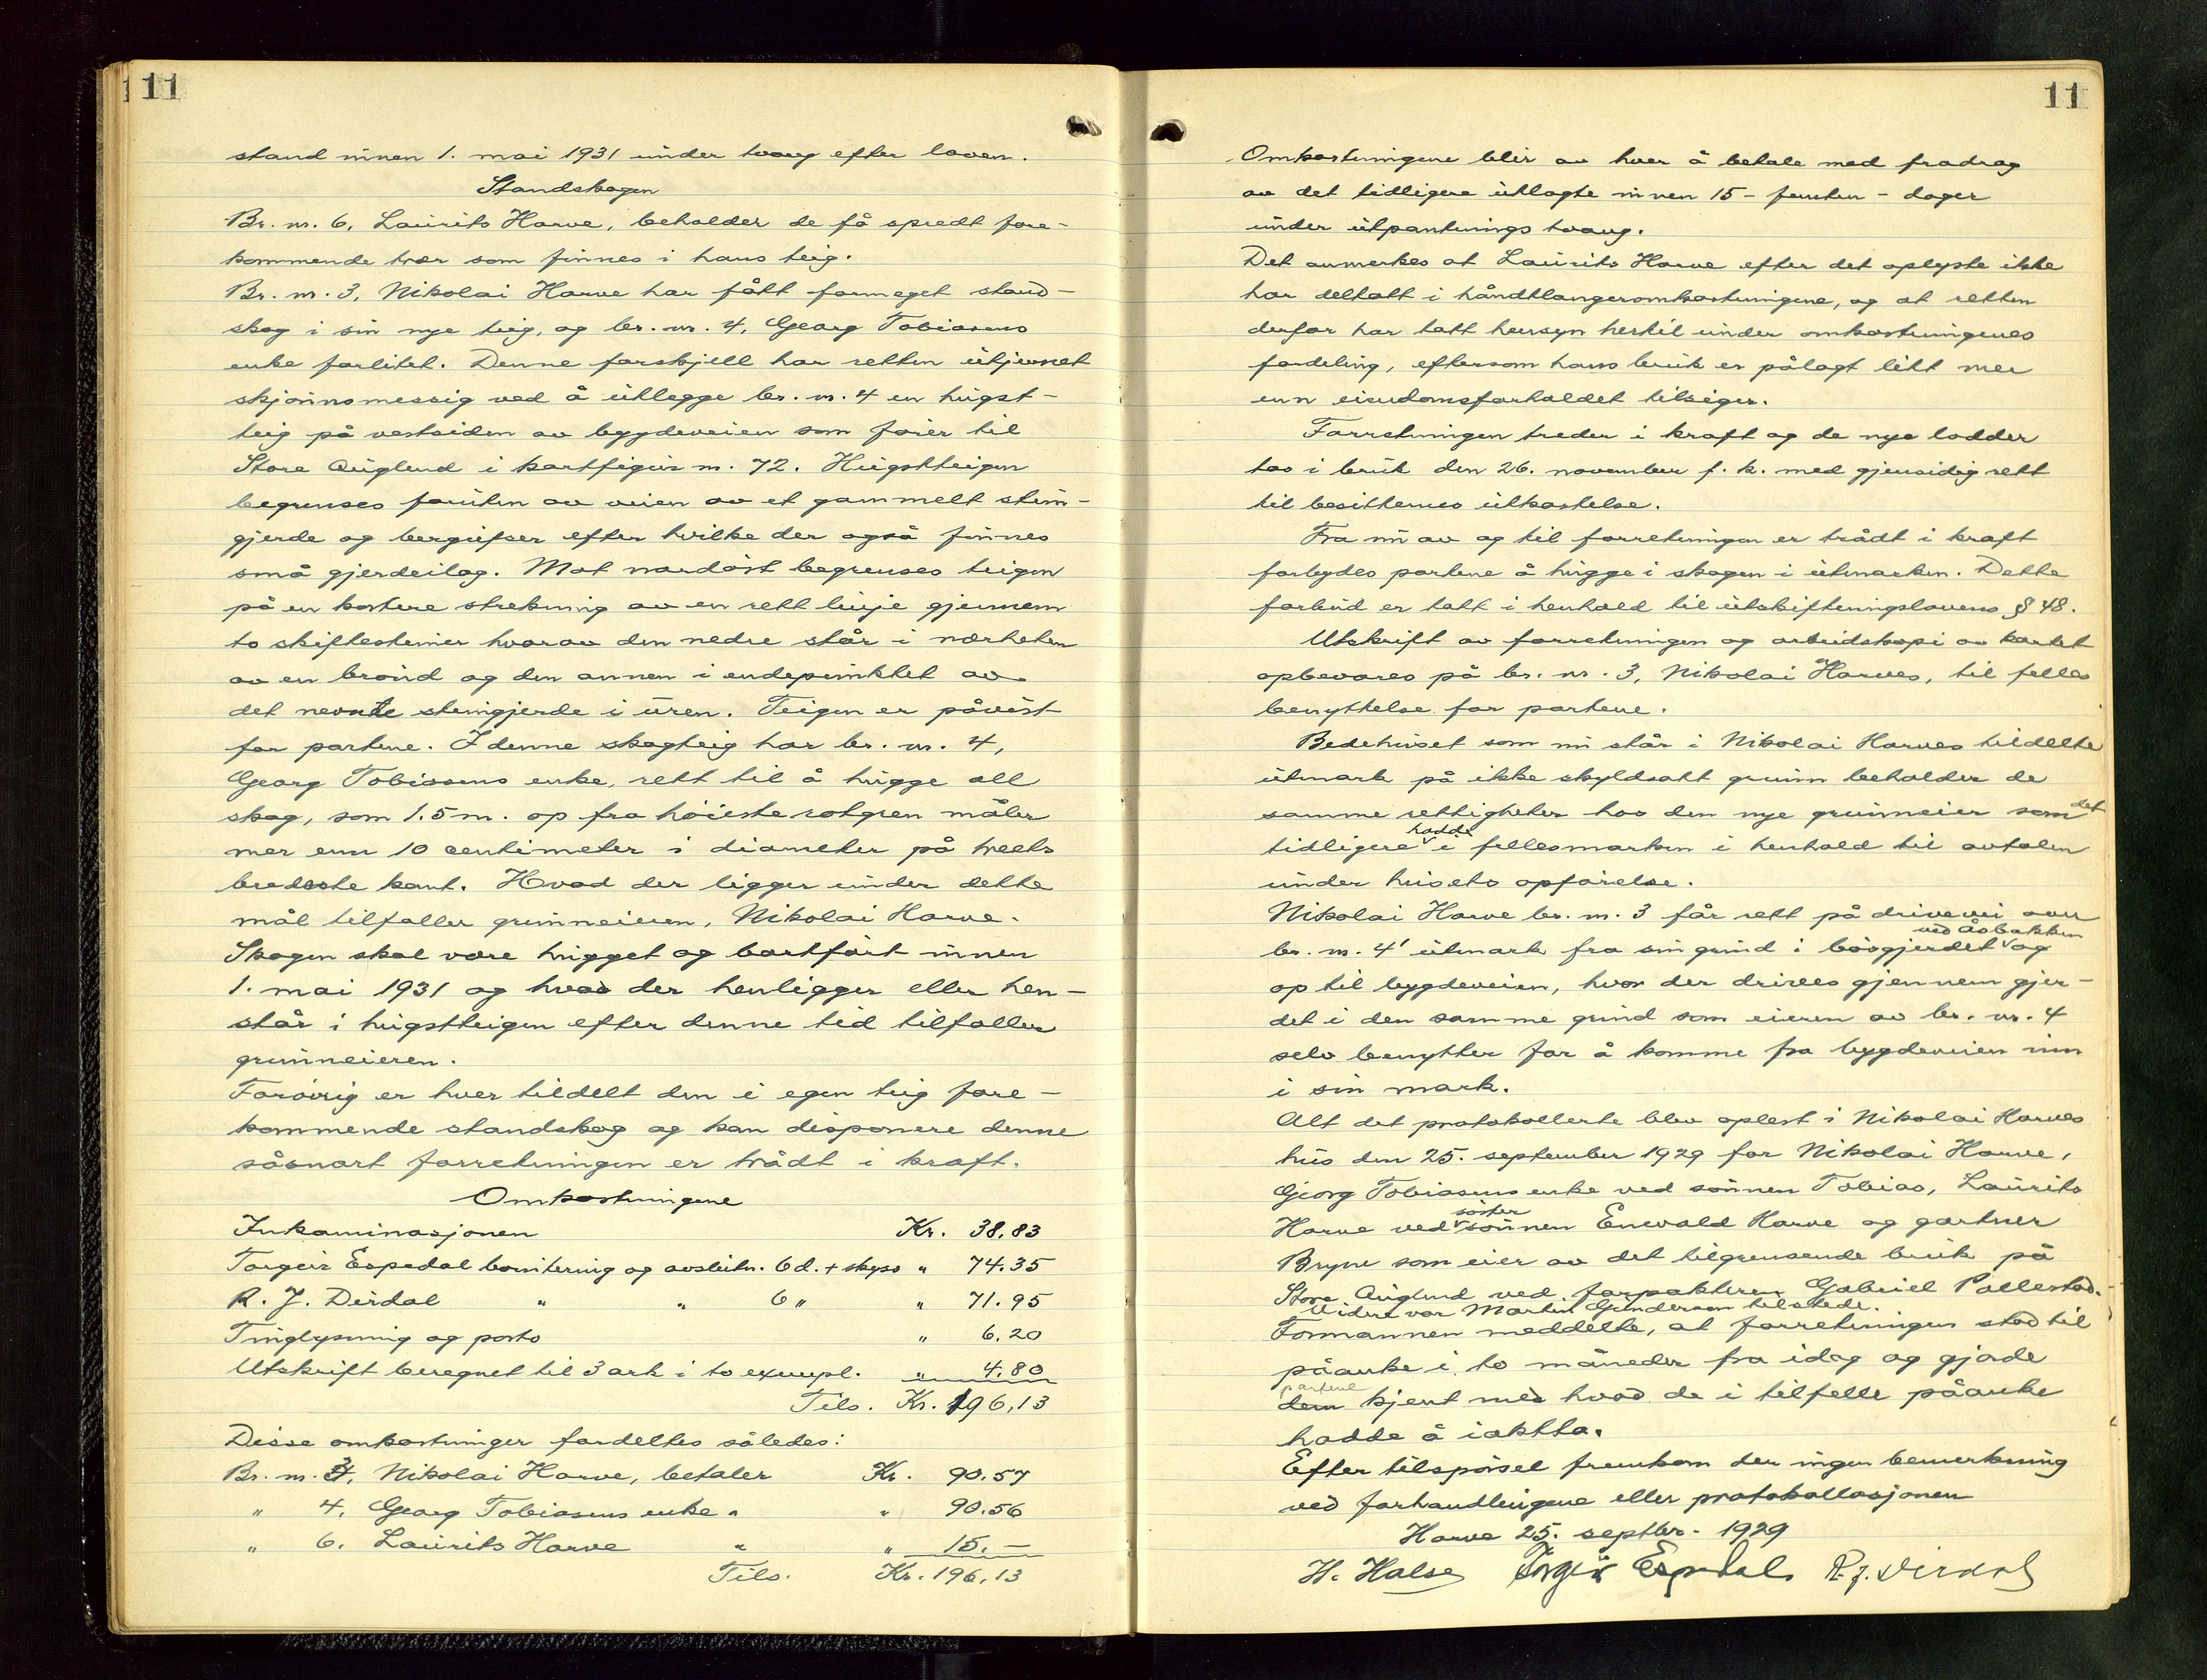 11
stand innen 1. mai 1931 under tvang efter loven.
Standskogen
Br. nr. 6, Laurits Harve, beholder de få spredt fore-
kommende trær som finnes i hans teig.
Br. nr. 3, Nikolai Harve har fått formeget stand-
skog i sin nye teig, og br. nr. 4, Georg Tobiasens
enke forlitet. Denne forskjell har retten utjevnet
skjønnsmessig ved å utlegge br. nr. 4 en hugst-
teig på vestsiden av bygdeveien som fører til
Store Auglend i kartfigur nr. 72. Hugstteigen
begrenses foruten av veien av et gammelt stein-
gjerde og bergufser efter hvilke der også finnes
små gjerdeilag. Mot nordøst begrenses teigen
på en kortere strekning av en rett linje gjennem
to skiftesteiner hvorav den nedre står i nærheten
av en brønd og den annen i endepunktet av
det nevnte steingjerde i uren. Teigen er påvist
for partene. I denne skogteig har br. nr. 4,
Georg Tobissens enke, rett til å hugge all
skog, som 1.5 m. op fra høieste rotgren måler
mer enn 10 centimeter i diameter på treets
bredeste kant. Hvad der ligger under dette
mål tilfaller grunneieren, Nikolai Harve.
Skogen skal være hugget og bortført innen
1. mai 1931 og hvad der henligger eller hen-
står i hugstteigen efter denne tid tilfaller
grunneieren.
Forøvrig er hver tildelt den i egen teig fore-
kommende standskog og kan disponere denne
såsnart forretningen er trådt i kraft.
Omkostningene
Inkaminasjonen Kr. 38.83
Torgeir Espedal bonitering og avsluttn. 6 d. + skyss " 74.35
R. J. Dirdal " " 6 " " 71.95
Tinglysning og porto " 6.20
Utskrift beregnet til 3 ark i to exempl. " 4.80
Tils. Kr. 196,13
Disse omkostninger fordeltes således:
Br. nr. 3, Nikolai Harve, betaler Kr. 90.57
" 4, Georg Tobiasens enke " " 90.56
" 6. Laurits Harve " " 15.—
Tils. Kr. 196,13
11
Omkostningene blir av hver å betale med fradrag
av det tidligere utlagte innen 15 - femten - dager
under utpantnings tvang.
Det anmerkes at Laurits Harve efter det oplyste ikke
har deltatt i håndtlangeromkostningene, og at retten
derfor har tatt hensyn hertil under omkostningenes
fordeling, eftersom hans bruk er pålagt litt mer
enn eiendomsforholdet tilsiger.
Forretningen treder i kraft og de nye lodder
tas i bruk den 26. november f. k. med gjensidig rett
til besitternes utkastelse.
Fra nu av og til forretningen er trådt i kraft
forbydes partene å hugge i skogen i utmarken. Dette
forbud er tatt i henhold til utskiftningslovens § 48.
Utskrift av forretningen og arbeidskopi av kartet
opbevares på br. nr. 3, Nikolai Harves, til felles
benyttelse for partene.
Bedehuset som nu står i Nikolai Harves tildelte
utmark på ikke skyldsatt grunn beholder de
samme rettigheter hos den nye grunneier som det
tidligere hadde i fellesmarken i henhold til avtalen
under husets opførelse.
Nikolai Harve br. nr. 3 får rett på drivevei over
ved Åsbakken
br. nr. 4' utmark fra sin grind i bøsgjerdet og
op til bygdeveien, hvor der drives gjennem gjer-
det i den samme grind som eieren av br. nr. 4
selv benytter for å komme fra bygdeveien inn
i sin mark.
Alt det protokollerte blev oplest i Nikolai Harves
hus den 25. september 1929 for Nikolai Harve,
Georg Tobissens enke ved sønnen Tobias, Laurits
Harve ved søstersønnen Enevald Harve og gartner
Bryne som eier av det tilgrensende bruk på
Store Auglend ved forpakteren Gabriel Pollestad.
Videre var Martin Gundersen tilstede.
Formannen meddelte, at forretningen stod til
påanke i to måneder fra idag og gjorde
partene
dem kjent med hvad de i tilfelle påanke
hadde å iaktta.
Efter tilspørsel fremkom der ingen bemerkning
ved forhandlingene eller protokollasjonen
Harve 25. septbr. 1929
H. Halse Torgeir Espedal R. J. Dirdal